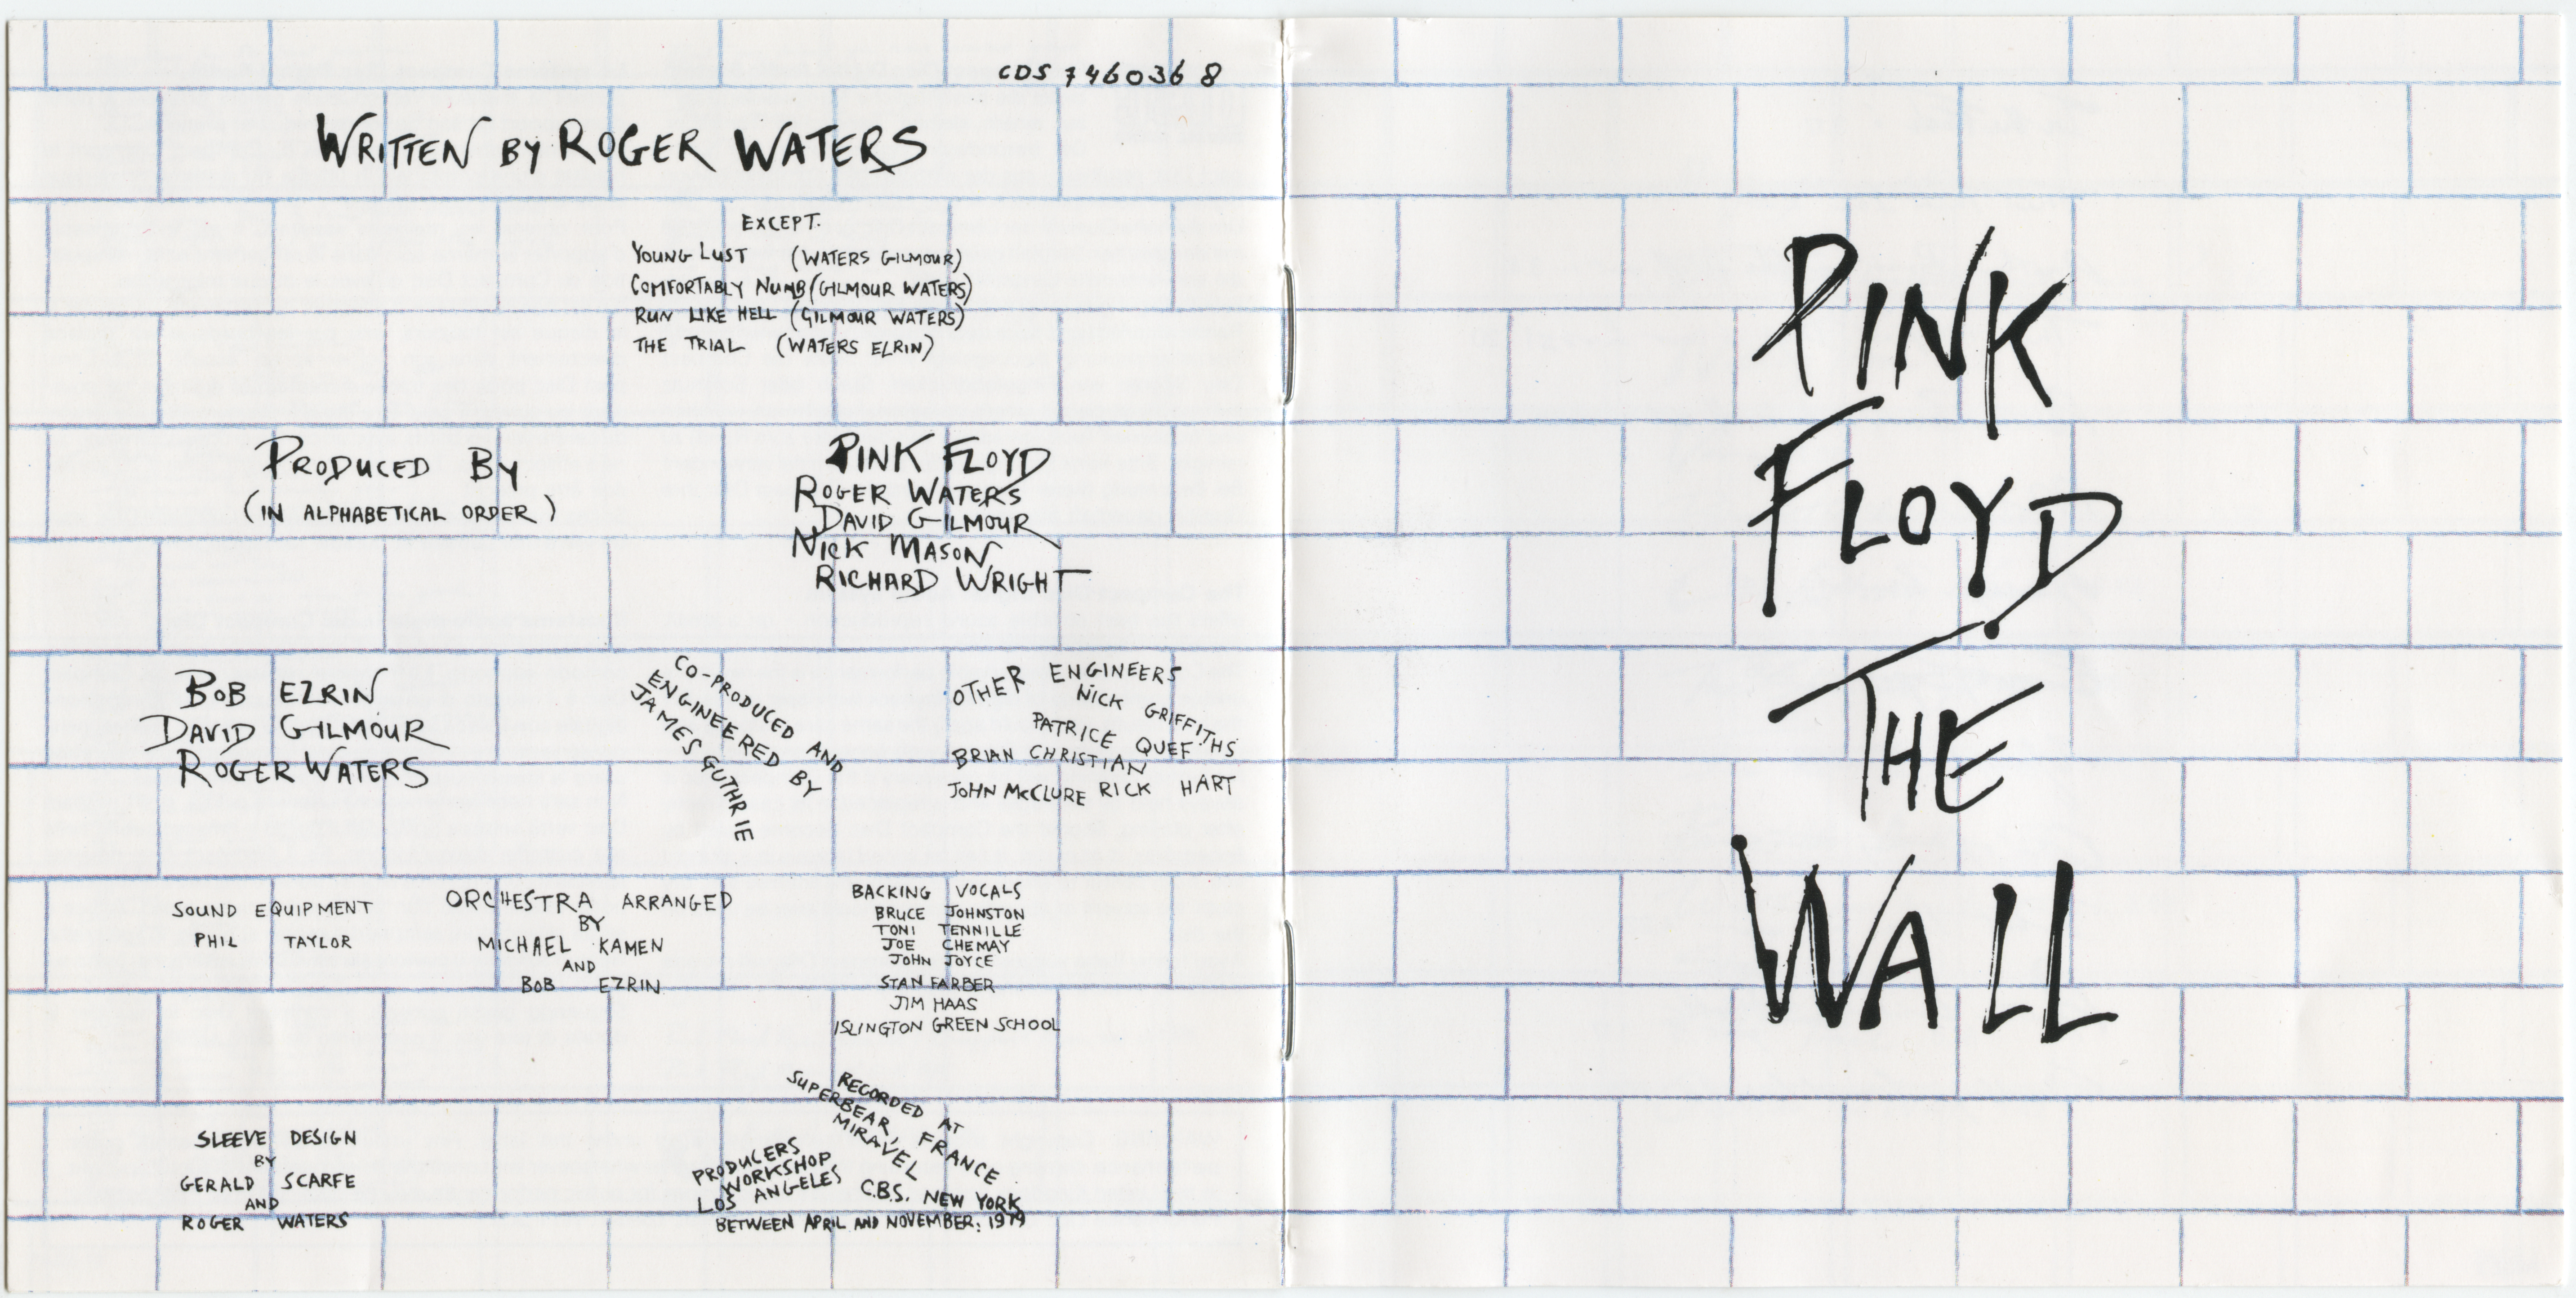 CDS 746036 8
WRITTEN BY ROGER WATERS
EXCEPT.
YOUNG LUST (WATERS GILMOUR)
COMFORTABLY NUMB (GILMOUR WATERS)
RUN LIKE HELL (GILMOUR WATERS)
THE TRIAL (WATERS EZRIN)
PRODUCED BY
(IN ALPHABETICAL ORDER)
PINK FLOYD
ROGER WATERS
DAVID GILMOUR
NICK MASON
RICHARD WRIGHT
BOB EZRIN
DAVID GILMOUR
ROGER WATERS
CO-PRODUCED AND
ENGINEERED BY
JAMES GUTHRIE
OTHER ENGINEERS
NICK GRIFFITHS
PATRICE QUEF
BRIAN CHRISTIAN
JOHN McCLURE RICK HART
SOUND EQUIPMENT
PHIL TAYLOR
ORCHESTRA ARRANGED
BY
MICHAEL KAMEN
AND
BOB EZRIN
BACKING VOCALS
BRUCE JOHNSTON
TONI TENNILLE
JOE CHEMAY
JOHN JOYCE
STAN FARBER
JIM HAAS
ISLINGTON GREEN SCHOOL
SLEEVE DESIGN
BY
GERALD SCARFE
AND
ROGER WATERS
RECORDED AT
SUPERBEAR, FRANCE
MIRAVEL
PRODUCERS
WORKSHOP
LOS ANGELES
C.B.S. NEW YORK
BETWEEN APRIL AND NOVEMBER: 1979
PINK
FLOYD
THE
WALL